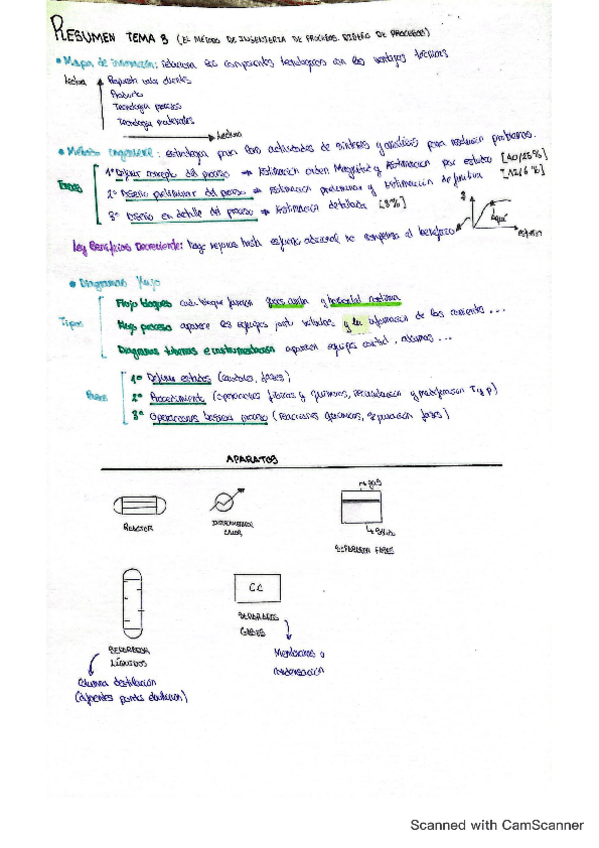 RESUMEN TEMA 3 (EL MÉTODO DE INGENIERIA DE PROCESOS. DISEÑO DE PROCESOS)
• Mapa de innovación: relaciona los componentes tecnológicos con las ventajas técnicas
Lectura
Productos
Tecnología procesos
Tecnología materiales
Lectura
• Método ingeniería: estrategia para las actividades de síntesis y análisis para resolver problemas.
Etapas
1º Definir concepto del proceso → Estimación orden Magnitud y Estimación por estudio [40/25%]
2º Diseño preliminar del proceso → Estimación preliminar y Estimación definitiva [12/6%]
3º Diseño en detalle del proceso → Estimación detallada [3%]
Ley Beneficios Decreciente: hacer mejoras hasta esfuerzo adicional no compensa el beneficio
• Diagramas flujo
Tipos
Flujo bloques cada bloque función
Flujo proceso aparece los equipos junto válvulas y la información de las corrientes...
Diagrama tuberías e instrumentación aparecen equipos control, alarmas...
1º Definir estados (caudales, fases)
2º Procedimiento (operaciones físicas y químicas, recirculación y modificación T y P)
3º Operaciones básicas proceso (reacciones químicas, separación fases)
APARATOS
REACTOR
INTERCAMBIADOR
CALOR
→ gas
SEPARADOR FASES
SEPARADOR
LÍQUIDOS
Columna destilación
(diferentes puntos ebullición)
CC
SEPARADOR
GASES
Membranas o
condensación
Scanned with CamScanner